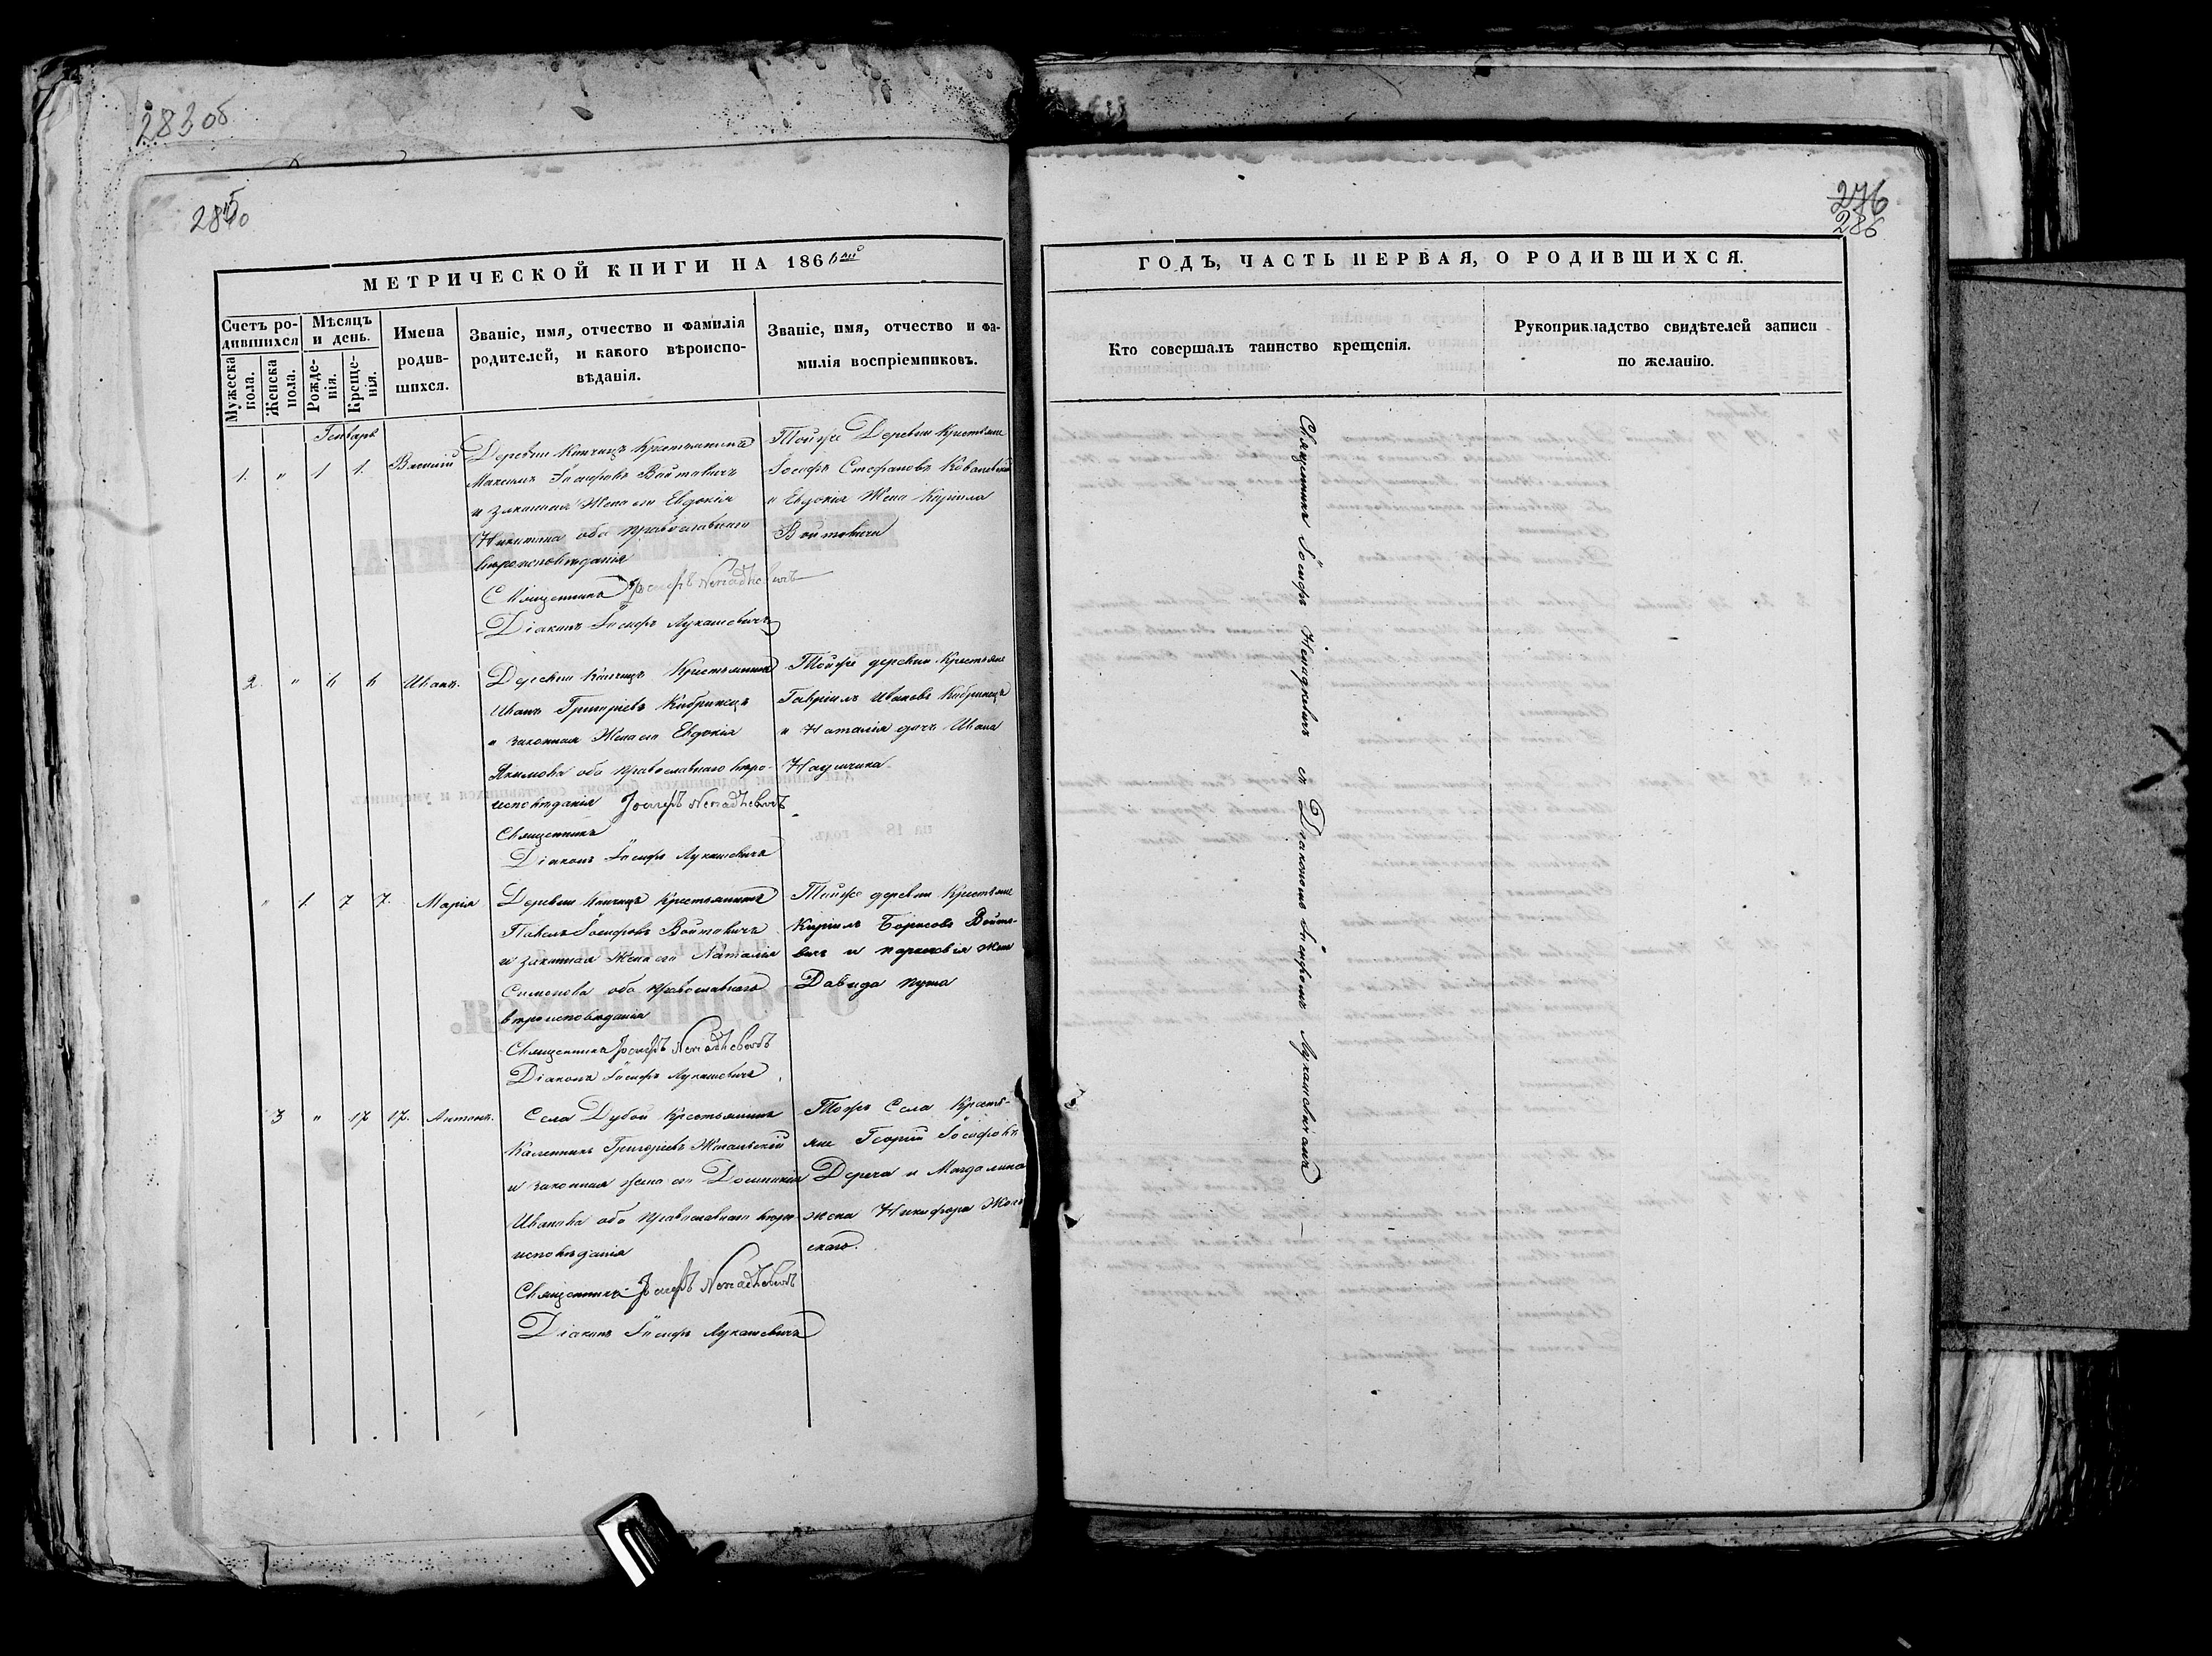 283об
285об
МЕТРИЧЕСКОЙ КНИГИ НА 1866ой
Счетъ ро-
дившихся
Мѣсяцъ
и день.
Мужеска
пола.
Женска
пола.
Рожде-
нія.
Креще-
нія.
Имена
родив-
шихся.
Званіе, имя, отчество и фамилія
родителей, и какого вѣроиспо-
вѣданія.
Званіе, имя, отчество и фа-
милія воспріемниковъ.
Генварь
1. " 1 1. Василій
Деревни Кнчицъ Крестьянинъ
Максимъ Іосифовъ Войтовичъ
и законная Жена его Евдокія
Никитина оба православнаго
вѣроисповѣданія
Священникъ Іосифъ Ненадкевичъ
Діаконъ Іосифъ Лукашевичъ
Тойже Деревни Крестьяне
Іосифъ Стефановъ Ковалевичъ
и Евдокія Жена Кирилла
Войтовича
2. " 6 6 Иванъ.
Деревни Кнчицъ Крестьянинъ
Иванъ Григорьевъ Кибринецъ
и законная Жена его Евдокія
Якимова оба православнаго вѣро-
исповѣданія Іосифъ Ненадкевичъ
Священникъ
Діаконъ Іосифъ Лукашевичъ
Тойже деревни Крестьяне
Гавріилъ Ивановъ Кибринецъ
и Наталія дочь Ивана
Наумчика
" 1 7 7. Марія
Деревни Кнчицъ Крестьянинъ
Павелъ Іосифовъ Войтовичъ
и законная Жена его Наталья
Симонова оба православнаго
вѣроисповѣданія
Священникъ Іосифъ Ненадкевичъ
Діаконъ Іосифъ Лукашевичъ
Тойже деревни Крестьяне
Кирилъ Борисовъ Войто-
вичъ и Парасковія жена
Давида Пута
3 " 17 17. Антонъ.
Села Дубой Крестьянинъ
Калинникъ Григорьевъ Жогальскій
и законная жена его Доминикія
Иванова оба православнаго вѣро-
исповѣданія
Священникъ Іосифъ Ненадкевичъ
Діаконъ Іосифъ Лукашевичъ
Тогожъ Села Крестья-
не Георгій Іосифовъ
Дереча и Магдалина
жена Никифора
скаго.
276
286
ГОДЪ, ЧАСТЬ ПЕРВАЯ, О РОДИВШИХСЯ.
Кто совершалъ таинство крещенія.
Рукоприкладство свидѣтелей записи
по желанію.
Священникъ Іосифъ Ненадкевичъ съ Діакономъ Іосифомъ Лукашевичемъ.